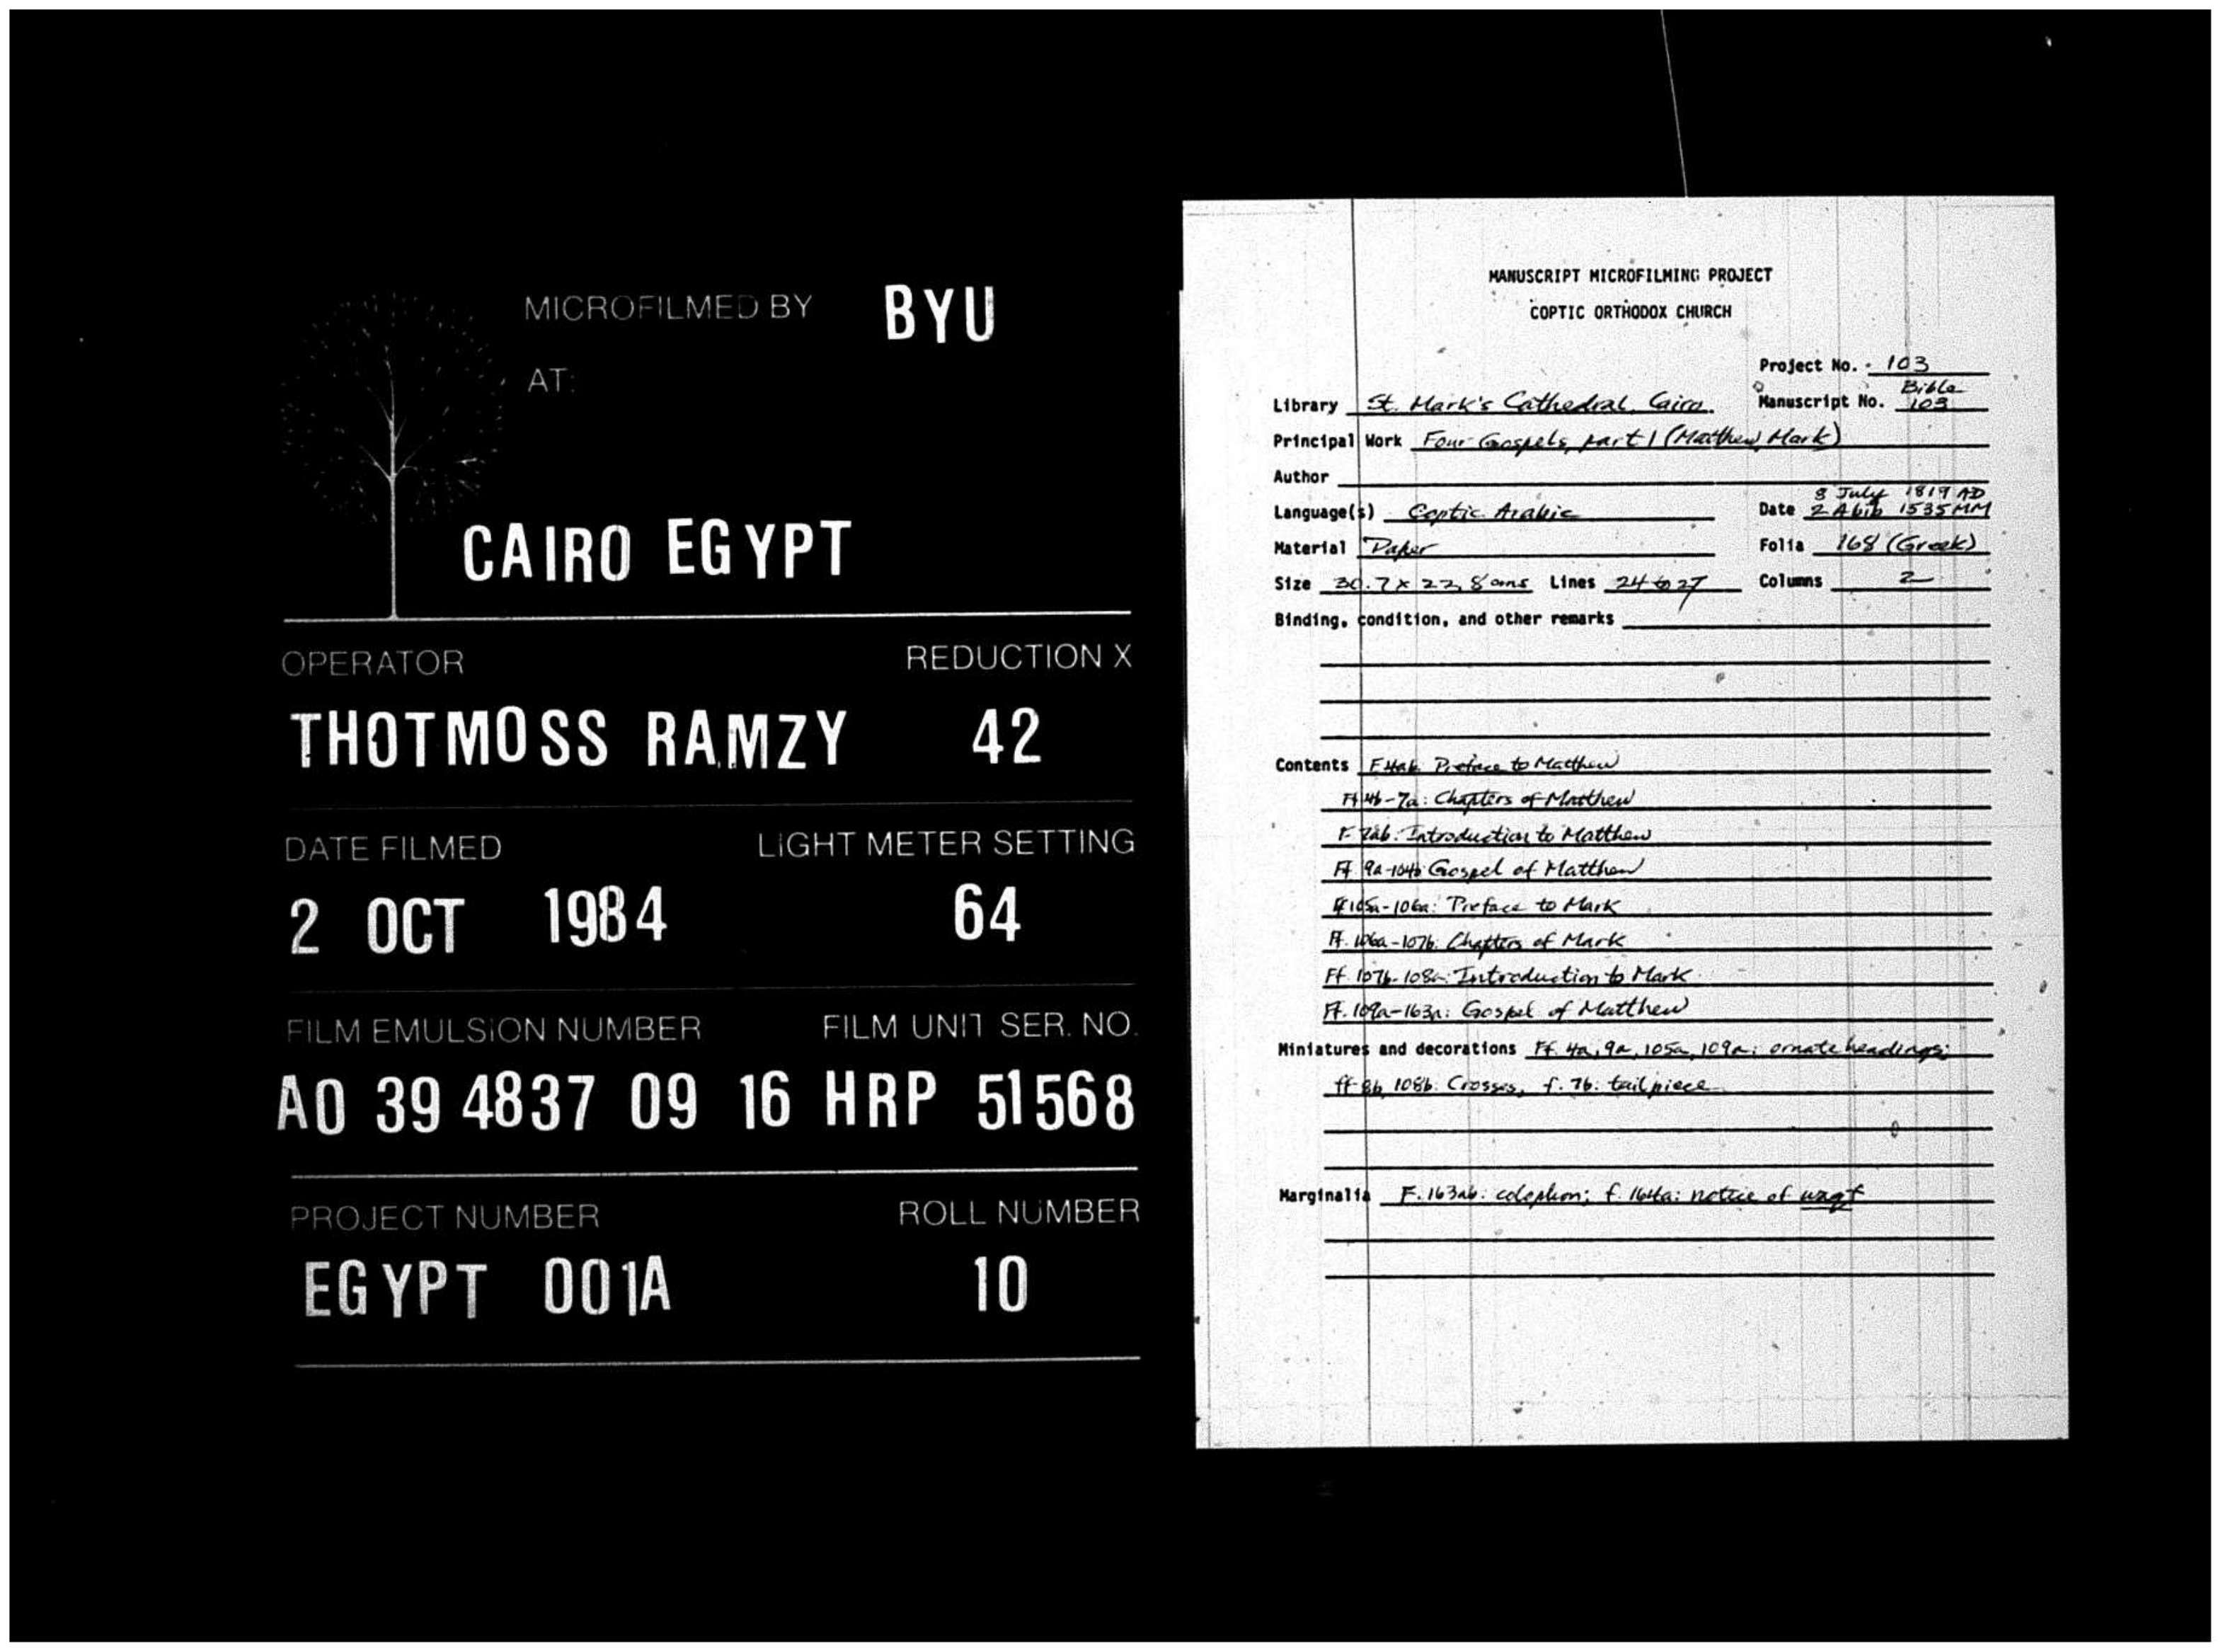 MICROFILMED BY BYU
AT:
CAIRO EGYPT
OPERATOR REDUCTION X
THOTMOSS RAMZY 42
DATE FILMED LIGHT METER SETTING
2 OCT 1984 64
FILM EMULSION NUMBER FILM UNIT SER. NO.
A0 39 4837 09 16 HRP 51568
PROJECT NUMBER ROLL NUMBER
EGYPT 001A 10
MANUSCRIPT MICROFILMING PROJECT
COPTIC ORTHODOX CHURCH
Project No. 103
Library St. Mark's Cathedral, Cairo Manuscript No. Bible 103
Principal Work Four Gospels, part 1 (Matthew, Mark)
Author
Language(s) Coptic Arabic Date 8 July 1819 AD
2 Abib 1535 MM
Material Paper Folia 168 (Greek)
Size 30.7 x 22.8 cms Lines 24 to 27 Columns 2
Binding, condition, and other remarks
Contents F. 4ab Preface to Matthew
Ff 4b-7a: Chapters of Matthew
F. 7ab: Introduction to Matthew
Ff. 9a-104b Gospel of Matthew
Ff 105a-106a: Preface to Mark
Ff. 106a-107b: Chapters of Mark
Ff. 107b-108a: Introduction to Mark
Ff. 109a-163a: Gospel of Matthew
Miniatures and decorations Ff. 4a, 9a, 105a, 109a: ornate headings;
ff 8b, 108b: Crosses, f. 7b: tailpiece
Marginalia F. 163ab: colophon; f. 164a: notice of waqf